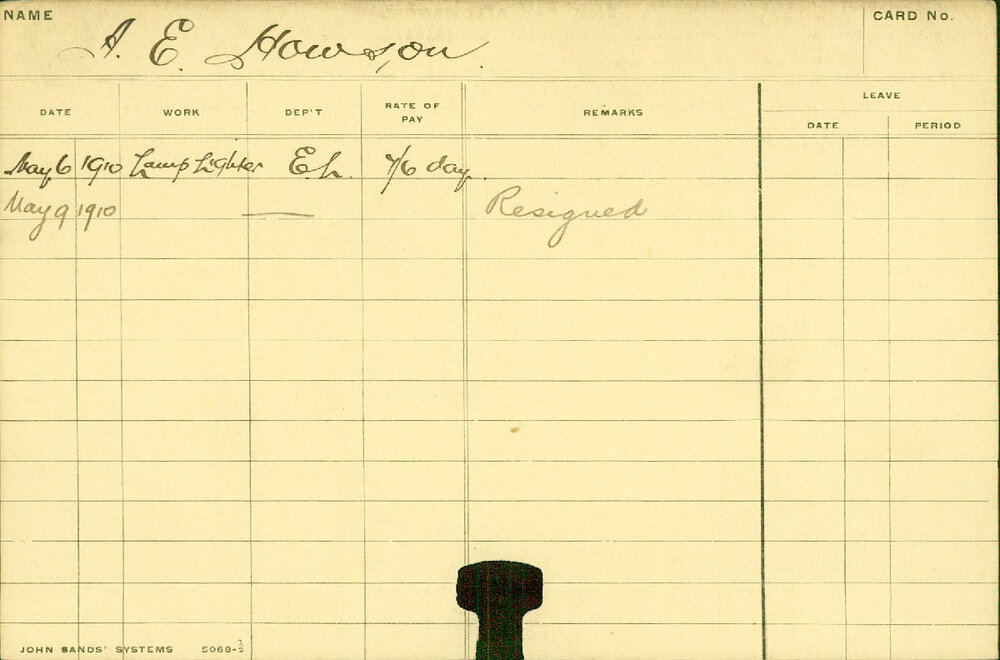 NAME
A. E. Howson.
CARD No.
DATE WORK DEP'T RATE OF PAY REMARKS LEAVE
DATE PERIOD
May 6 1910 Lamp Lighter E.L. 7/6 day.
May 9 1910 — Resigned
JOHN SANDS' SYSTEMS 5068-½